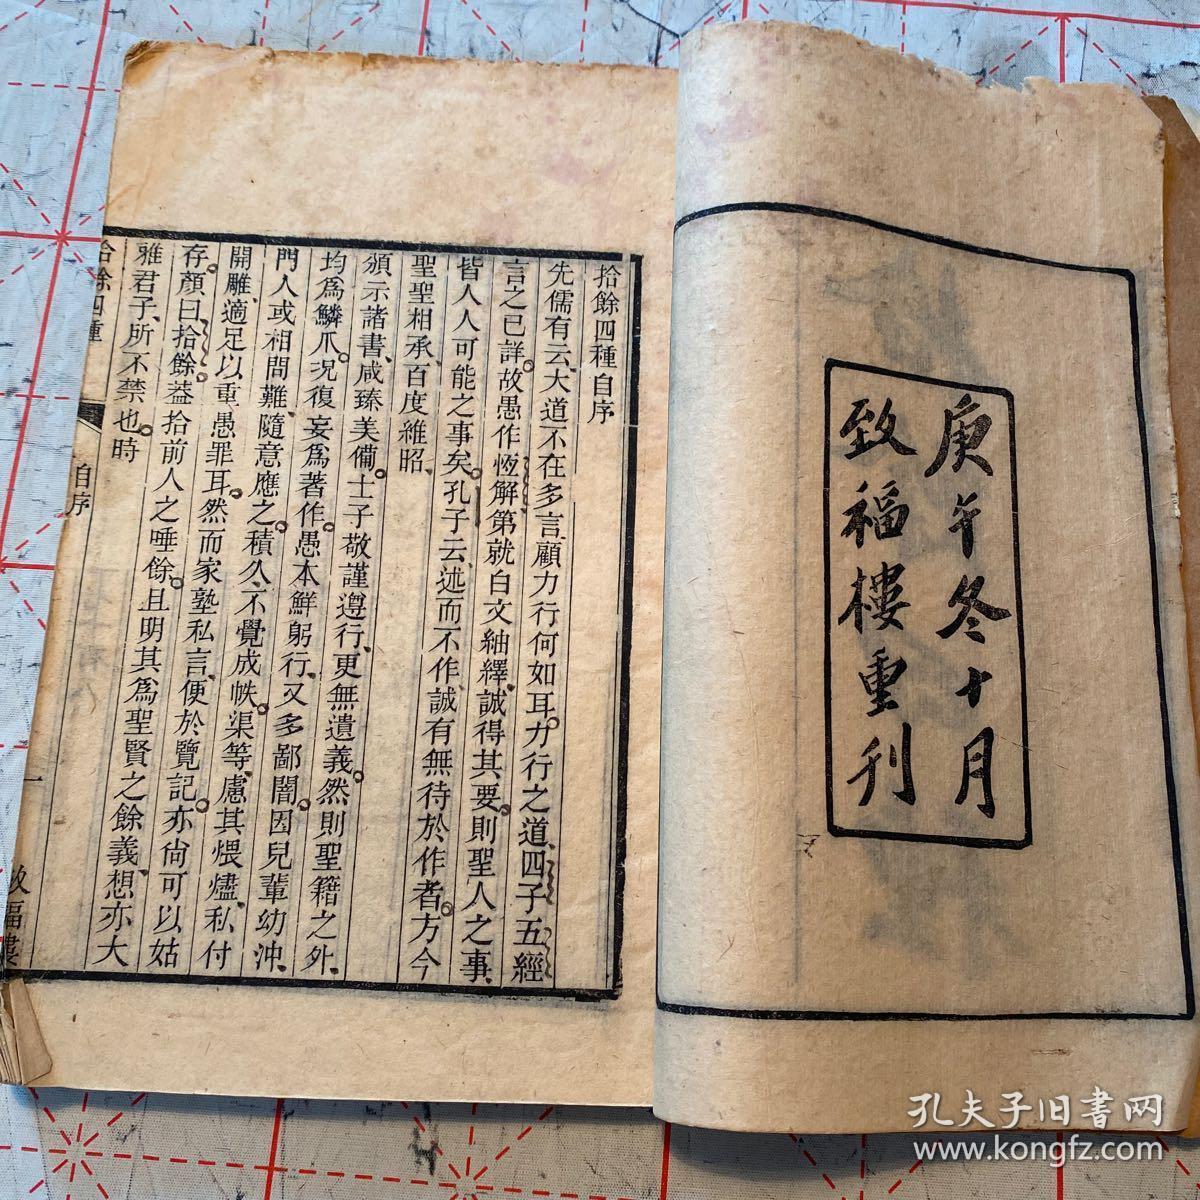 庚午冬十月
致福樓重刊
拾餘四種自序
先儒有云、大道不在多言、顧力行何如耳。力行之道、四子五經
言之已詳。故愚作恆解、第就白文紬繹、誠得其要。則聖人之事、
皆人人可能之事矣。孔子云、述而不作、誠有無待於作者。方今
聖聖相承、百度維昭、
頒示諸書、咸臻美備。士子敬謹遵行、更無遺義。然則聖籍之外、
均為鱗爪。況復妄為著作。愚本鮮躬行、又多鄙闇。因兒輩幼沖、
門人或相問難、隨意應之。積久不覺成帙。渠等慮其煨燼、私付
開雕、適足以重愚罪耳。然而家塾私言、便於覽記。亦尚可以姑
存。顏曰拾餘。葢拾前人之唾餘。且明其為聖賢之餘義、想亦大
雅君子、所不禁也。時
拾餘四種
自序
一
致福樓
孔夫子旧書网
www.kongfz.com